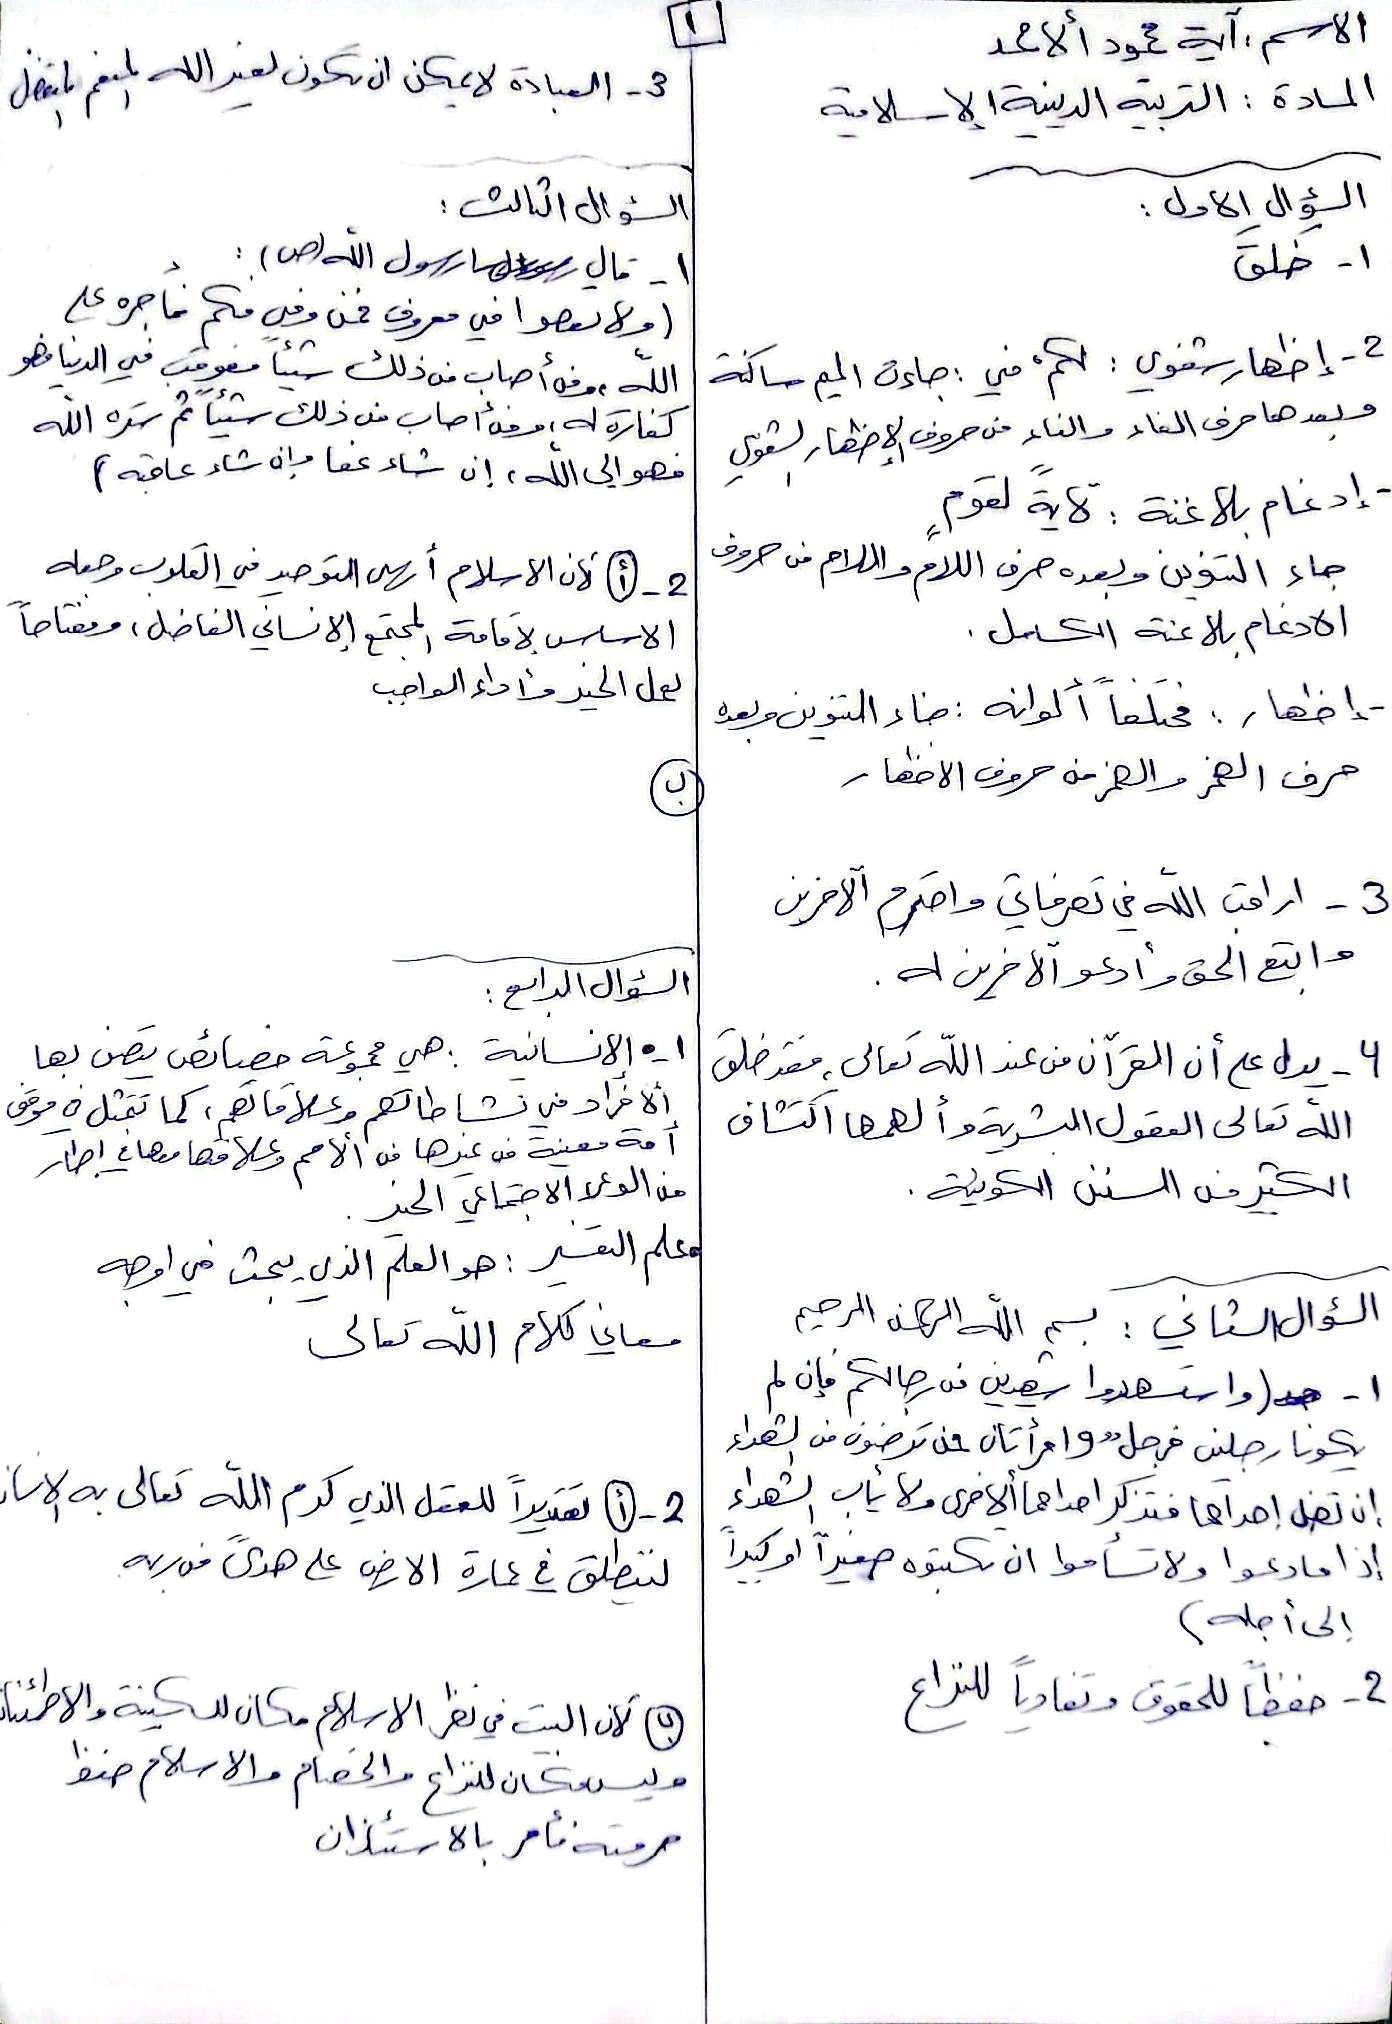 ١
الاسم: آية محمود الأحمد
المادة: التربية الدينية الإسلامية
السؤال الأول:
١- خلقَ
2- إظهار شفوي: لكمْ في: جاءت الميم ساكنة
وبعدها حرف الفاء والفاء من حروف الإظهار الشفوي
- إدغام بلا غنة: لآيةً لقومٍ
جاء التنوين وبعده حرف اللام واللام من حروف
الادغام بلا غنة الكامل.
- إظهار: مختلفاً ألوانه: جاء التنوين وبعده
حرف الهمز والهمز من حروف الاظهار
3- اراقب الله في تصرفاتي واحترم الآخرين
واتبع الحق وأدعو الآخرين له.
4- يدل على أن القرآن من عند الله تعالى، فقد خلق
الله تعالى العقول البشرية وألهمها اكتشاف
الكثير من السنن الكونية.
السؤال الثاني: بسم الله الرحمن الرحيم
١- (واستشهدوا شهيدين من رجالكم فإن لم
يكونا رجلين فرجل وامرأتان ممن ترضون من الشهداء
إن تضل إحداهما فتذكر احداهما الأخرى ولا يأب الشهداء
إذا ما دعوا ولا تسأموا ان تكتبوه صغيراً او كبيراً
إلى أجله)
2- حفظاً للحقوق وتفادياً للنزاع
3- العبادة لا يمكن ان تكون لغير الله المنعم المتفضل
السؤال الثالث:
١- قال رسول الله (ص):
(ولا تعصوا في معروف فمن وفى منكم فأجره على
الله، ومن أصاب من ذلك شيئاً فعوقب في الدنيا فهو
كفارة له، ومن أصاب من ذلك شيئاً ثم ستره الله
فهو إلى الله، إن شاء عفا وإن شاء عاقبه)
2- أ لأن الاسلام أرسى التوحيد في القلوب وجعله
الاساس لإقامة المجتمع الإنساني الفاضل، ومفتاحاً
لعمل الخير وأداء الواجب
ب
السؤال الرابع:
١- الإنسانية: هي مجموعة خصائص يتصف بها
الأفراد في نشاطاتهم وعلاقاتهم، كما تتمثل في موقف
أمة معينة من غيرها من الأمم وعلاقتها معها في إطار
من الوعي الاجتماعي الخير.
علم التفسير: هو العلم الذي يبحث في اوجه
معاني كلام الله تعالى
2- أ تقديراً للعقل الذي كرم الله تعالى به الانسان
لينطلق في عمارة الارض على هدىً من ربه
ب لأن البيت في نظر الاسلام مكان للسكينة والاطمئنان
وليس مكان للنزاع والخصام والاسلام حفظ
حرمته فأمر بالاستئذان